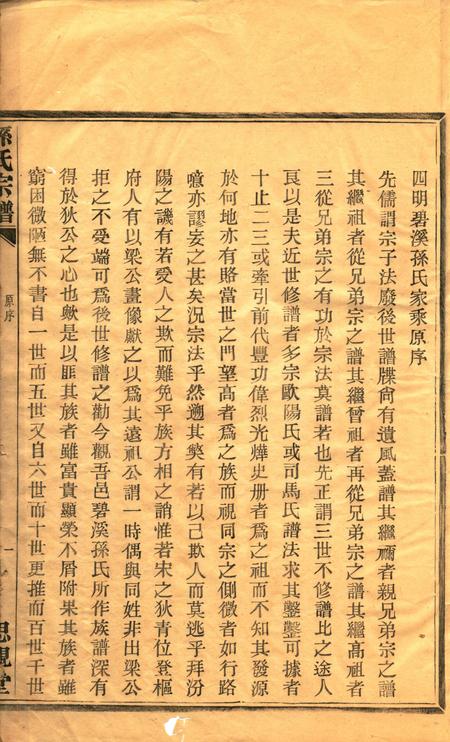 四明碧溪孫氏家乘原序
先儒謂宗子法廢後世譜牒尙有遺風蓋譜其繼禰者親兄弟宗之譜
其繼祖者從兄弟宗之譜其繼曾祖者再從兄弟宗之譜其繼高祖者
三從兄弟宗之有功於宗法莫譜若也先正謂三世不修譜比之途人
良以是夫近世修譜者多宗歐陽氏或司馬氏譜法求其鑿鑿可據者
十止二三或牽引前代豐功偉烈光燁史册者爲之祖而不知其發源
於何地亦有賂當世之門望高者爲之族而視同宗之側微者如行路
噫亦謬妄之甚矣況宗法乎然遡其獘有若以己欺人而莫逃乎拜汾
陽之譏有若受人之欺而難免乎族方相之誚惟若宋之狄青位登樞
府人有以梁公畫像獻之以爲其遠祖公謂一時偶與同姓非出梁公
拒之不受端可爲後世修譜之勸今觀吾邑碧溪孫氏所作族譜深有
得於狄公之心也歟是以匪其族者雖富貴顯榮不屑附果其族者雖
窮困微陋無不書自一世而五世又自六世而十世更推而百世千世
孫氏宗譜
原序
一
思覲堂